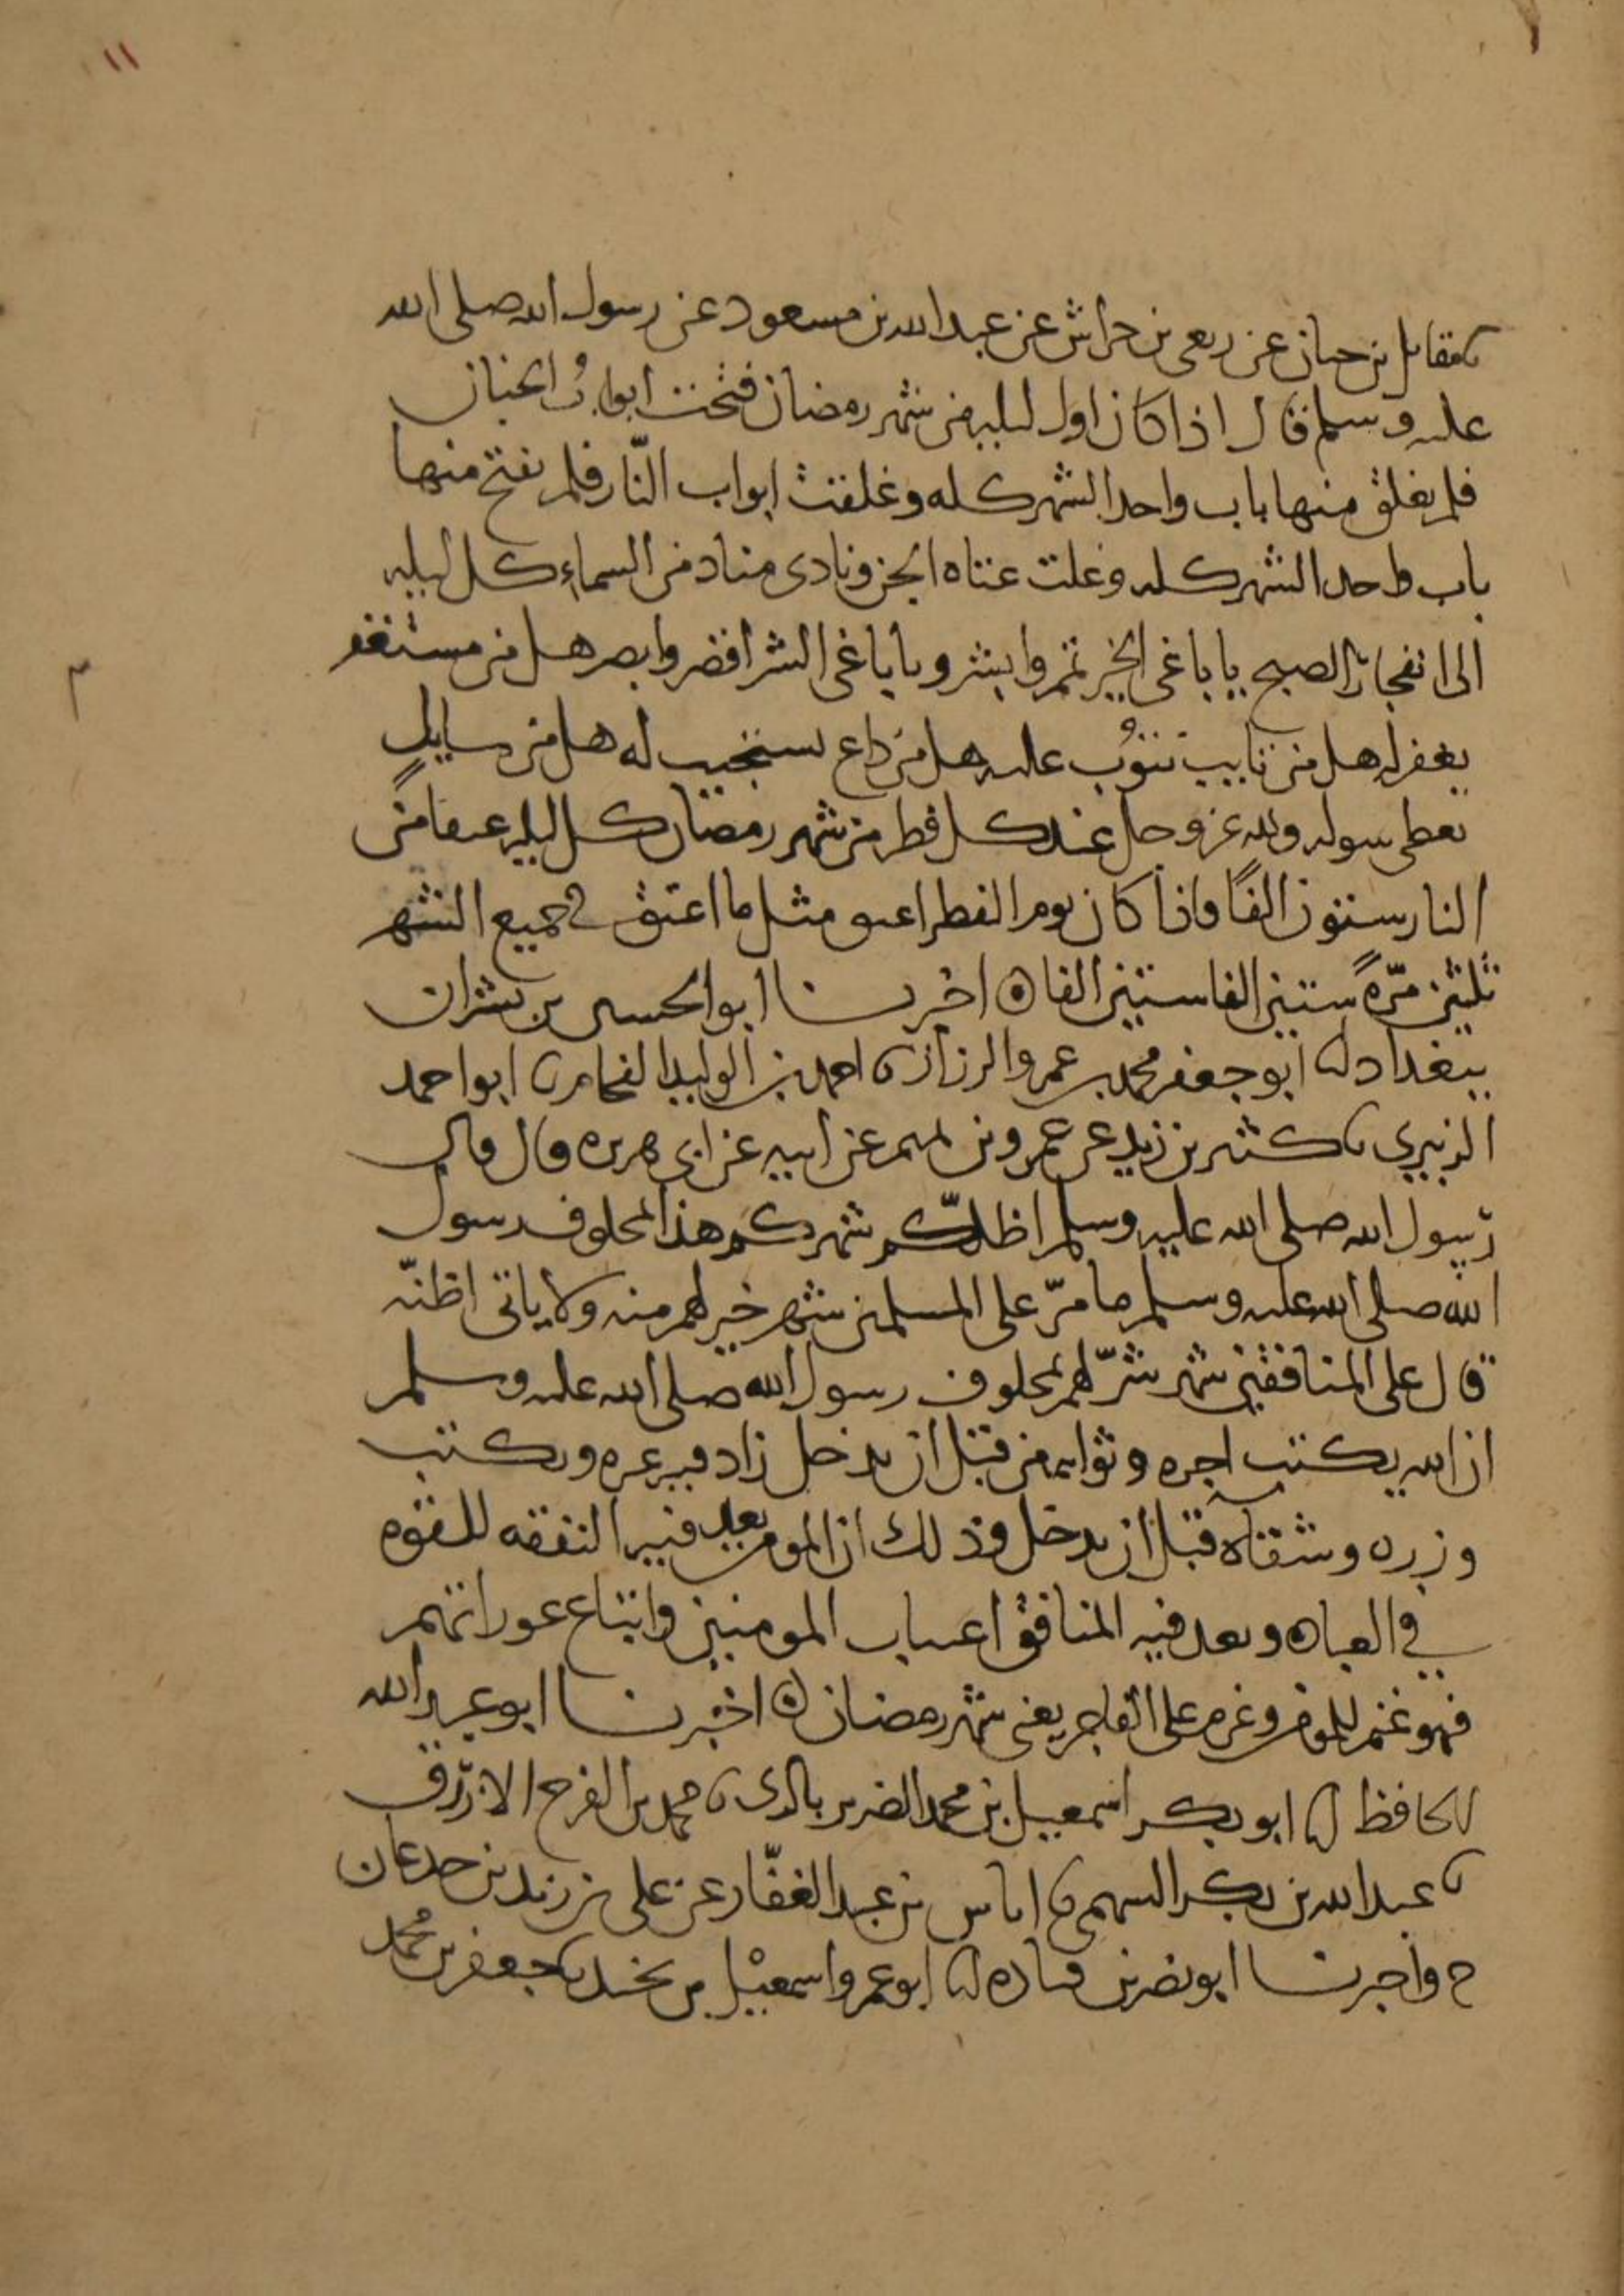 ١١
نا مقاتل بن حيان عن ربعى بن حراش عن عبد الله بن مسعود عن رسول الله صلى الله
عليه وسلم قال اذا كان اول ليله من شهر رمضان فتحت ابوابُ الجنان
فلم يغلق منها باب واحد الشهر كله وغلقت ابواب النّار فلم يفتح منها
باب واحد الشهر كله وغلت عتاه الجن ونادى مناد من السماء كل ليله
الى انفجار الصبح يا باغى الخير تمم وابشر ويا باغى الشر اقصر وابصر هل من مستغفر
يغفر له هل من تايب نتوُب عليه هل من داع نستجيب له هل من سايلٍ
يعطى سوله ولله عز وجل عند كل فطر من شهر رمضان كل ليله عتقا من
النار ستون الفًا فاذا كان يوم الفطر اعتق مثل ما اعتق في جميع الشهر
ثلثين مرّهً ستين الفا ستين الفا ه اخبرنا ابو الحسين بن بشران
ببغداد انا ابو جعفر محمد بن عمرو الرزاز نا احمد بن الوليد الفحام نا ابو احمد
الزبيري نا كثير بن زيد عن عمرو بن تميم عن ابيه عن ابى هريره قال قال
رسول الله صلى الله عليه وسلم اظلّكم شهركم هذا بمحلوف رسول
الله صلى الله عليه وسلم ما مرّ على المسلمين شهر خير لهم منه ولا ياتى اظنّه
قال على المنافقين شهر شرّ لهم بمحلوف رسول الله صلى الله عليه وسلم
ان الله يكتب اجره وثوابه من قبل ان يدخل زاد غيره ويكتب
وزره وشقاه قبل ان يدخل وذلك ان المومن يعد فيه النفقه للقوه
في العباده ويعد فيه المنافق اغتياب المومنين واتباع عوراتهم
فهو غنم للمومن وغرم على الفاجر يعنى شهر رمضان ه اخبرنا ابو عبد الله
الحافظ انا ابو بكر اسمعيل بن محمد الضرير بالرى نا محمد بن الفرج الازرق
نا عبد الله بن بكر السهمى نا اياس بن عبد الغفّار عن على بن زيد بن جدعان
ح واخبرنا ابو نصر بن قتاده انا ابو عمرو اسمعيل بن نجيد نا جعفر بن مُحمد